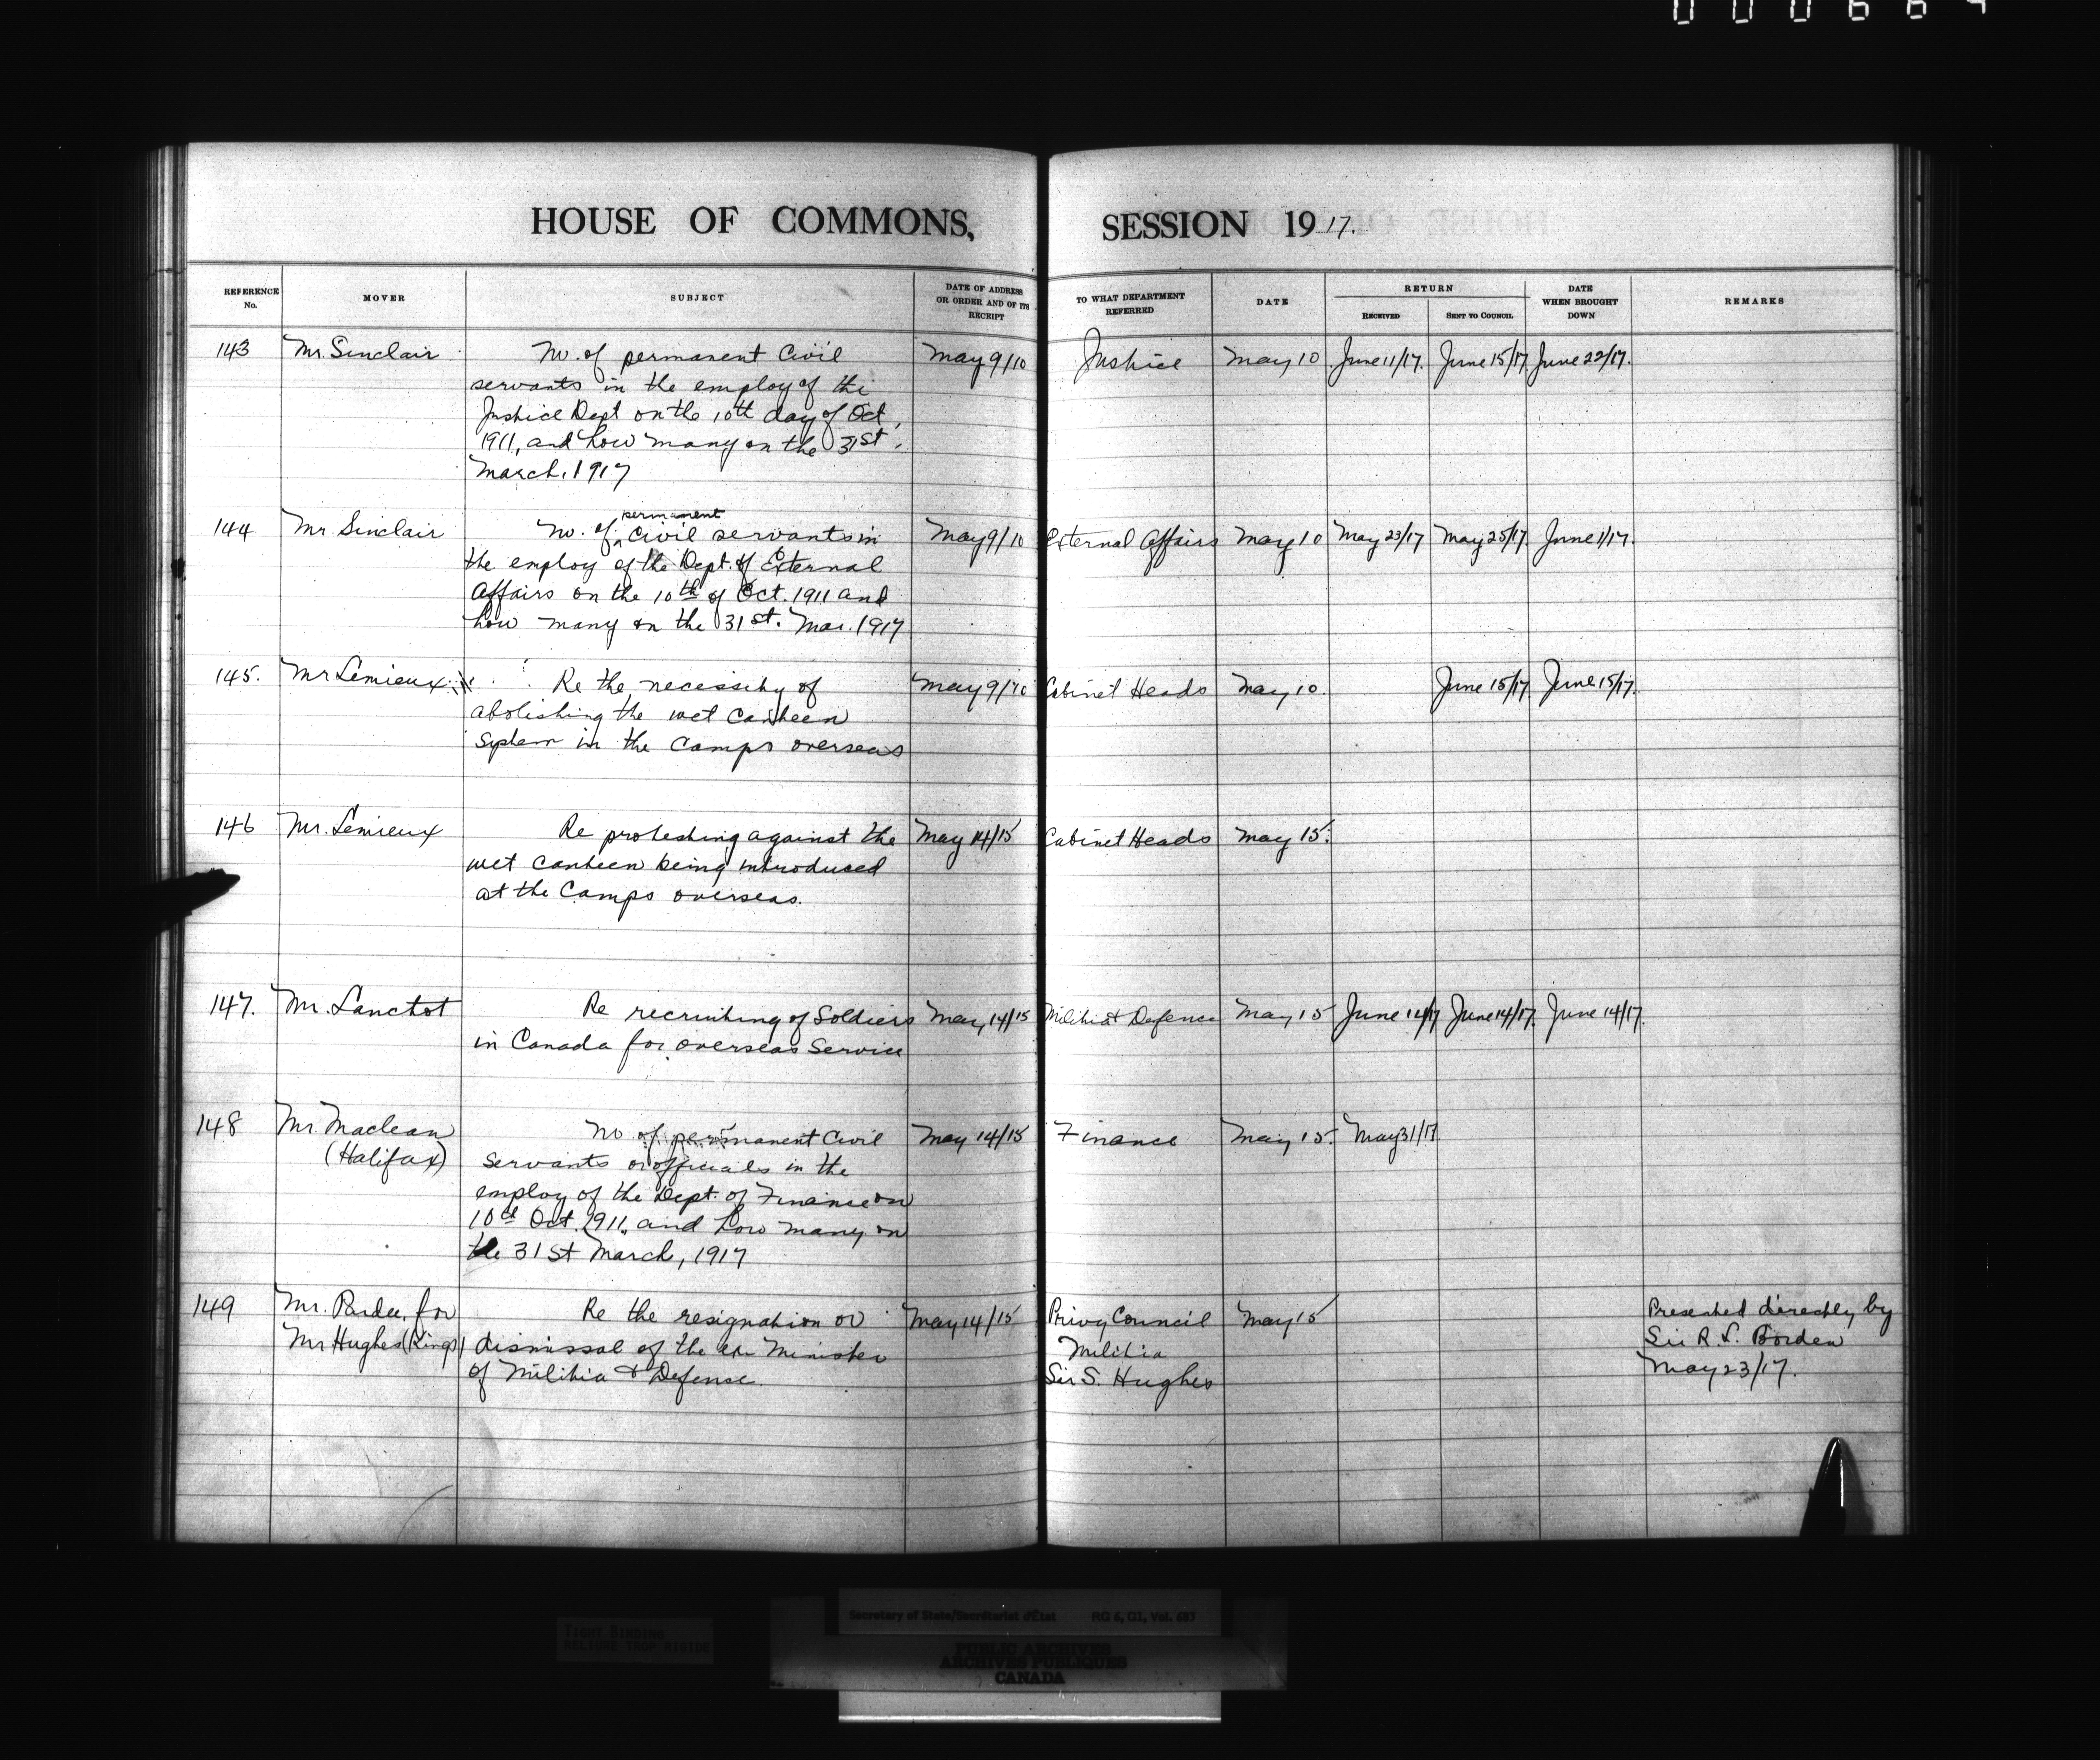 000664
HOUSE OF COMMONS, SESSION 1917.
REFERENCE No. MOVER SUBJECT DATE OF ADDRESS OR ORDER AND OF ITS RECEIPT TO WHAT DEPARTMENT REFERRED DATE RETURN RECEIVED SENT TO COUNCIL DATE WHEN BROUGHT DOWN REMARKS
143 Mr. Sinclair No. of permanent Civil May 9/10 Justice May 10 June 11/17. June 15/17 June 22/17.
servants in the employ of the
Justice Dept on the 10th day of Oct.
1911, and how many on the 31st.
March, 1917
144 Mr. Sinclair No. of permanent Civil servants in May 9/10 External Affairs May 10 May 23/17 May 25/17 June 1/17.
the employ of the Dept. of External
Affairs on the 10th of Oct. 1911 and
how many on the 31st. Mar. 1917
145. Mr Lemieux Re the necessity of May 9/10 Cabinet Heads May 10. June 15/17 June 15/17.
abolishing the wet Canteen
System in the Camps overseas
146 Mr. Lemieux Re protesting against the May 14/15 Cabinet Heads May 15.
wet Canteen being introduced
at the Camps overseas.
147. Mr. Lanctot Re recruiting of Soldiers May 14/15 Militia & Defence May 15 June 14/17 June 14/17. June 14/17.
in Canada for overseas Service
148 Mr. Maclean No of permanent Civil May 14/15 Finance May 15. May 31/17
(Halifax) Servants or officials in the
employ of the Dept. of Finance on
10th Oct. 1911, and how many on
the 31st March, 1917
149 Mr. Pardee, for Re the resignation or May 14/15 Privy Council May 15 Presented directly by
Mr Hughes (Kings) dismissal of the ex Minister Militia Sir R. L. Borden
of Militia & Defence. Sir S. Hughes May 23/17.
TIGHT BINDING
RELIURE TROP RIGIDE
Secretary of State/Secrétariat d'État RG 6, G1, Vol. 683
PUBLIC ARCHIVES
ARCHIVES PUBLIQUES
CANADA